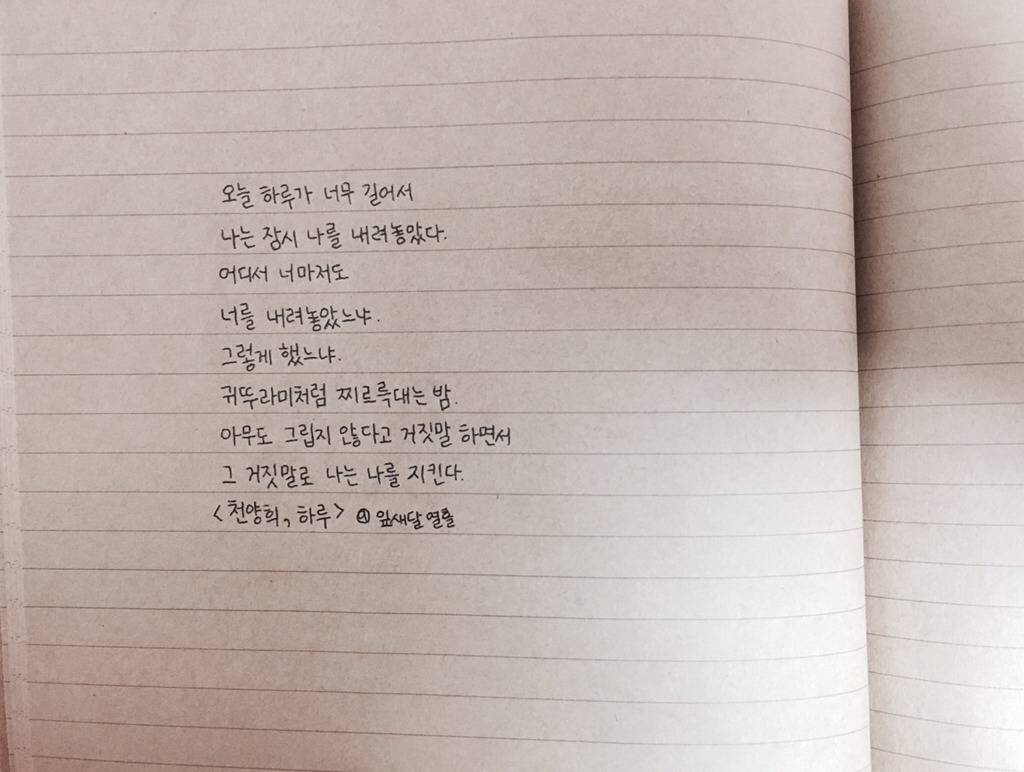 오늘 하루가 너무 길어서
나는 잠시 나를 내려놓았다.
어디서 너마저도
너를 내려놓았느냐.
그렇게 했느냐.
귀뚜라미처럼 찌르륵대는 밤.
아무도 그립지 않다고 거짓말 하면서
그 거짓말로 나는 나를 지킨다.
<천양희, 하루> 잎새달 열